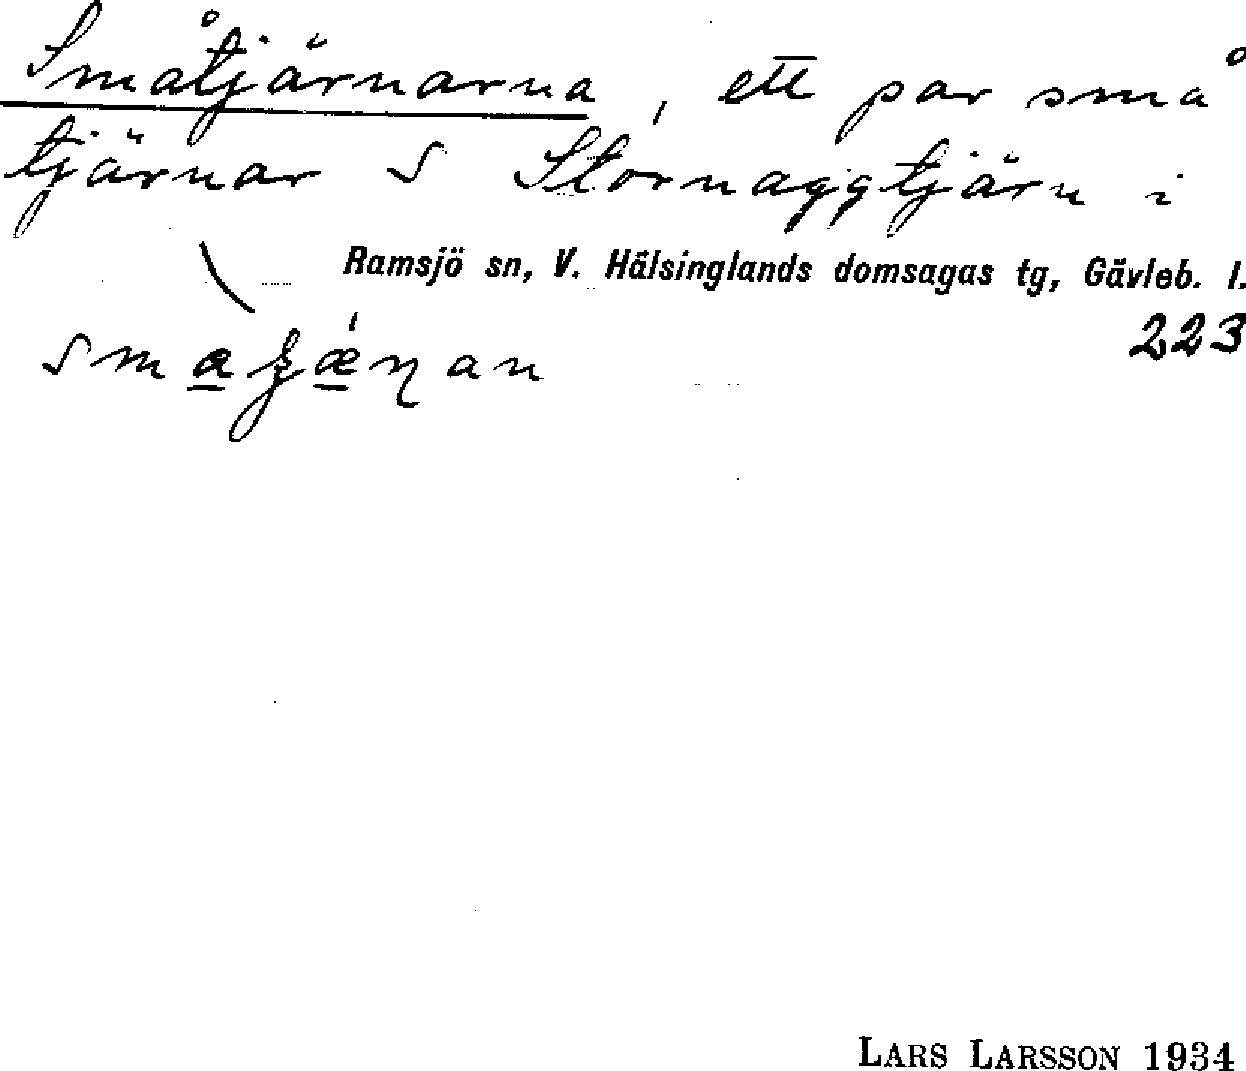 Småtjärnarna, ett par små
tjärnar S Stornaggtjärn i
Ramsjö sn, V. Hälsinglands domsagas tg, Gävleb. l.
223
LARS LARSSON 1934